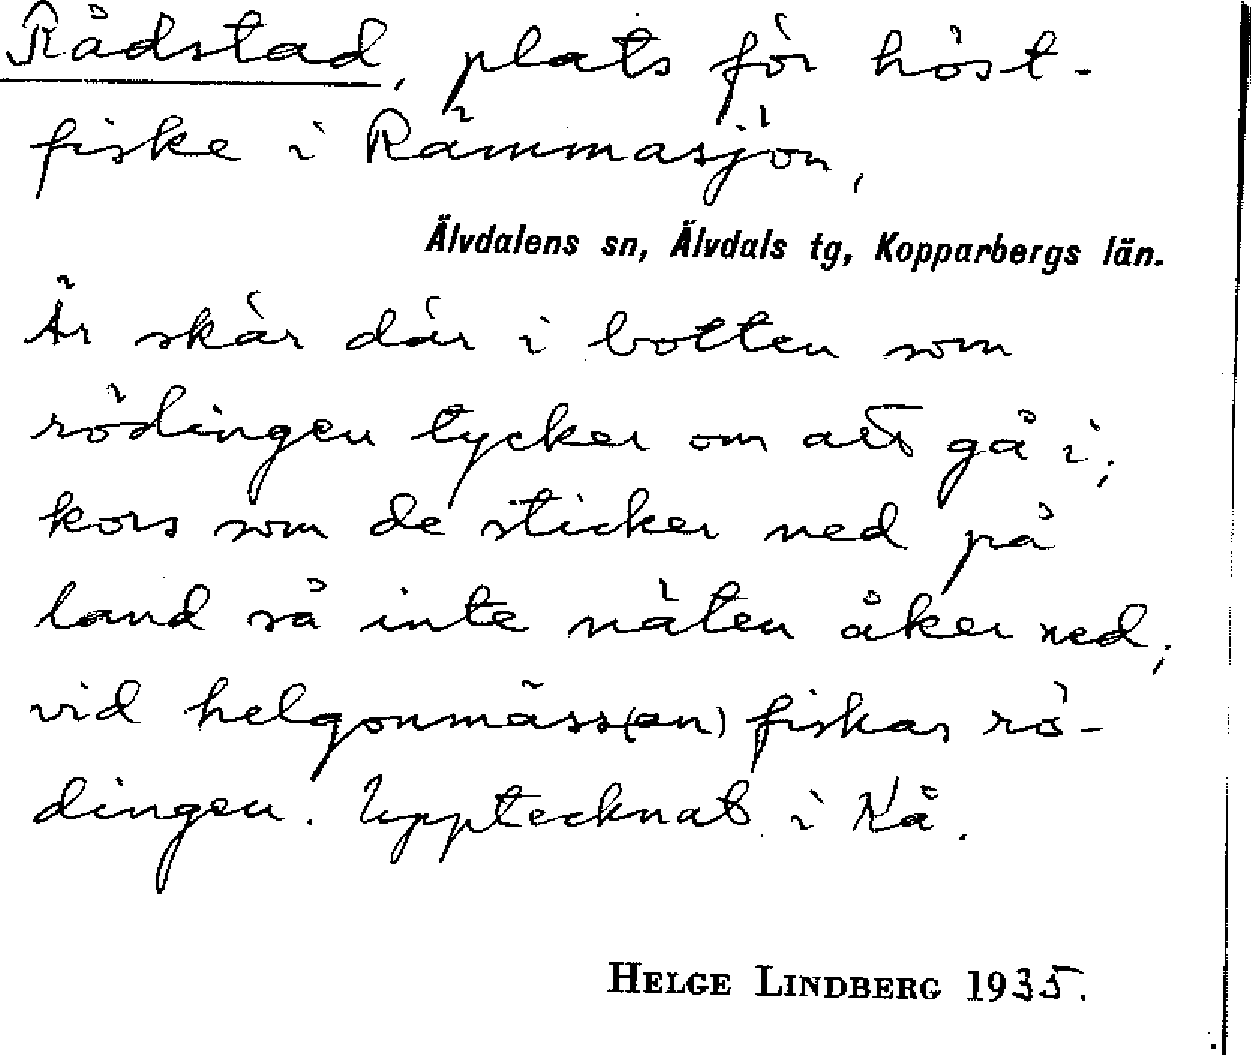 Rådstad, plats för höst-
fiske i Rämmasjön,
Älvdalens sn, Älvdals tg, Kopparbergs län.
Är skär där i botten som
rödingen tycker om att gå i;
kors som de sticker ned på
land så inte näten åker ned;
vid helgonmäss(an) fiskas rö-
dingen. Upptecknat i Kå.
HELGE LINDBERG 1935.